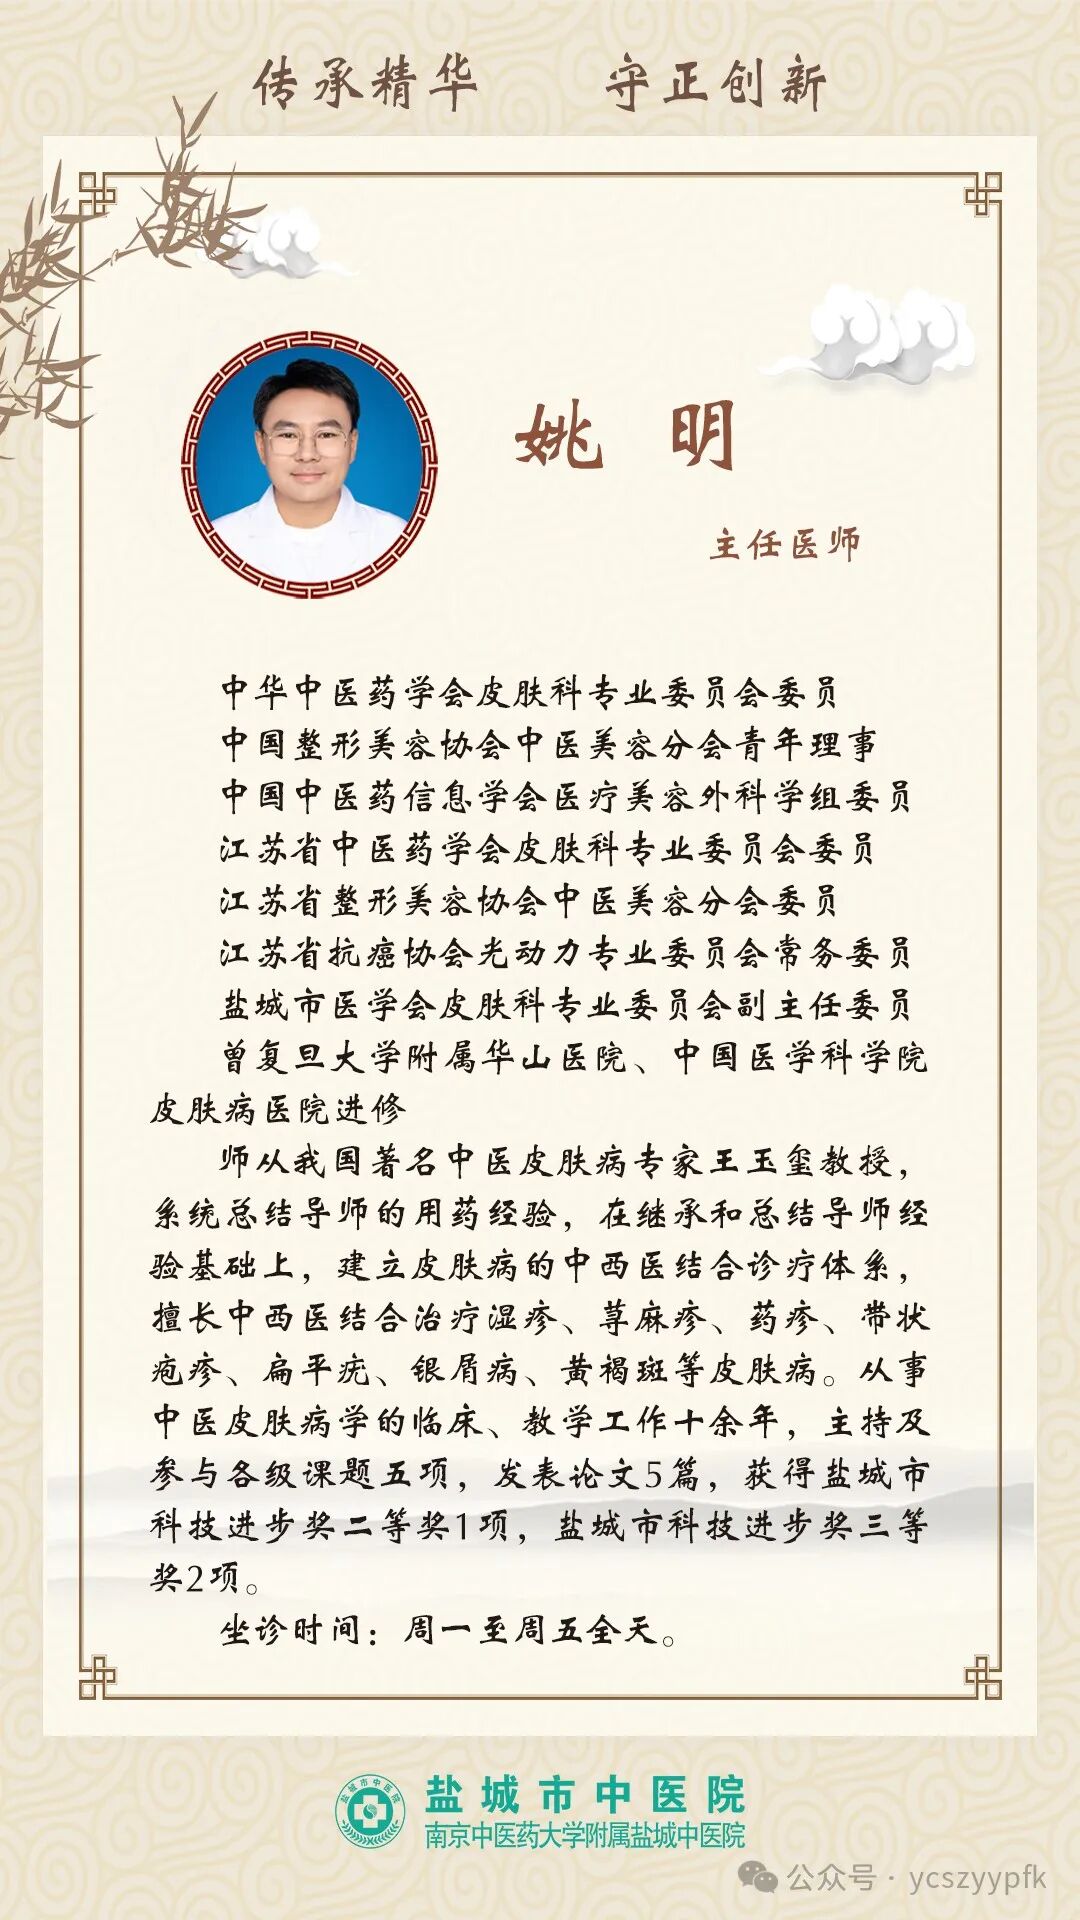 传承精华 守正创新
姚 明
主任医师
中华中医药学会皮肤科专业委员会委员
中国整形美容协会中医美容分会青年理事
中国中医药信息学会医疗美容外科学组委员
江苏省中医药学会皮肤科专业委员会委员
江苏省整形美容协会中医美容分会委员
江苏省抗癌协会光动力专业委员会常务委员
盐城市医学会皮肤科专业委员会副主任委员
曾复旦大学附属华山医院、中国医学科学院
皮肤病医院进修
师从我国著名中医皮肤病专家王玉玺教授，
系统总结导师的用药经验，在继承和总结导师经
验基础上，建立皮肤病的中西医结合诊疗体系，
擅长中西医结合治疗湿疹、荨麻疹、药疹、带状
疱疹、扁平疣、银屑病、黄褐斑等皮肤病。从事
中医皮肤病学的临床、教学工作十余年，主持及
参与各级课题五项，发表论文5篇，获得盐城市
科技进步奖二等奖1项，盐城市科技进步奖三等
奖2项。
坐诊时间：周一至周五全天。
盐城市中医院
盐城市中医院
南京中医药大学附属盐城中医院
公众号·ycszyypfk